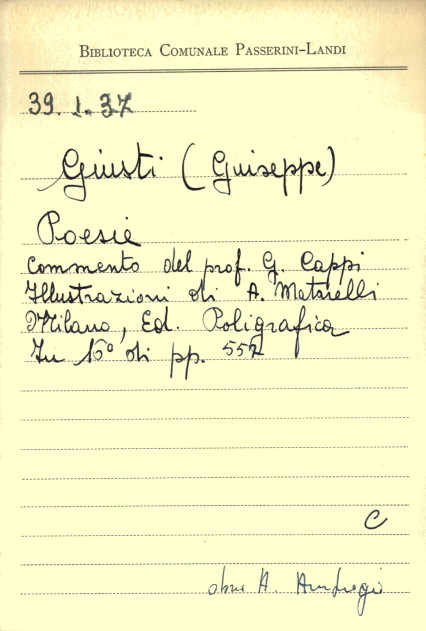 BIBLIOTECA COMUNALE PASSERINI-LANDI
39. 1. 37
Giusti (Guiseppe)
Poesie
Commento del prof. G. Cappi
Illustrazioni di A. Matarelli
Milano, Ed. Poligrafica
In 16° di pp. 552
C
A.